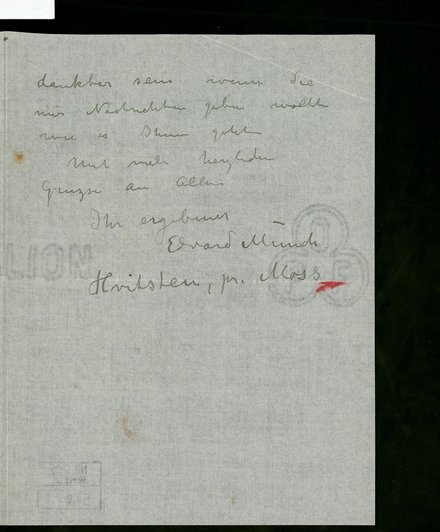 dankbar sein wenn Sie
mir Nachrichten geben wollten
wie es Ihnen geht
Mit viele herzlichen
Gruzse an Alle
Ihr ergebener
Edvard Munch
Hvitsten, pr. Moss